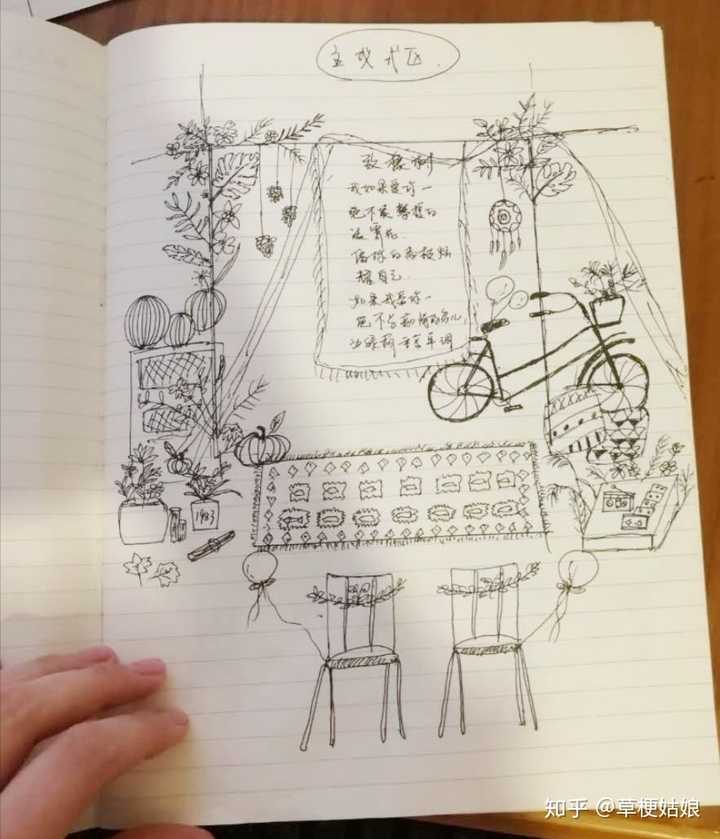 主仪式区.
致橡树
我如果爱你一
绝不象攀援的
凌霄花
借你的高枝炫
耀自己.
如果我爱你一
绝不学痴情的鸟儿,
为绿荫重复单调
1983
知乎 @草梗姑娘